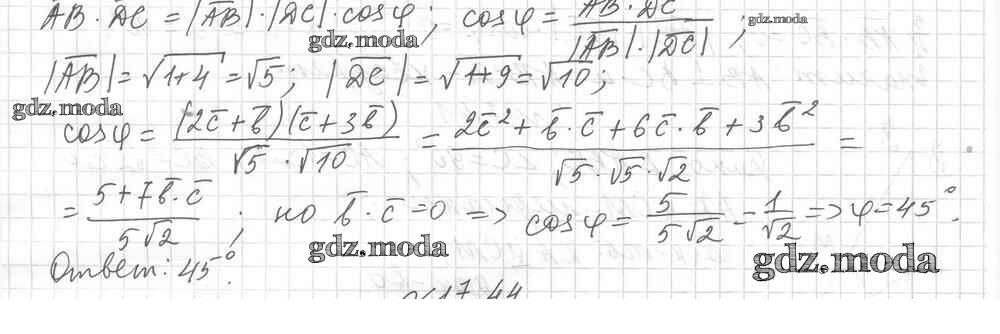 AB · DC = |AB| · |DC| · cosφ; cosφ = AB · DC / |AB| · |DC| ;
gdz.moda
gdz.moda
|AB| = √1+4 = √5; |DC| = √1+9 = √10;
gdz.moda
cosφ = (2c̄ + b̄)(c̄ + 3b̄) / √5 · √10 = 2c̄² + b̄ · c̄ + 6c̄ · b̄ + 3b̄² / √5 · √5 · √2 =
= 5 + 7b̄ · c̄ / 5√2 ; но b̄ · c̄ = 0 => cosφ = 5 / 5√2 = 1 / √2 => φ = 45°.
gdz.moda
gdz.moda
Ответ: 45°.
17.44